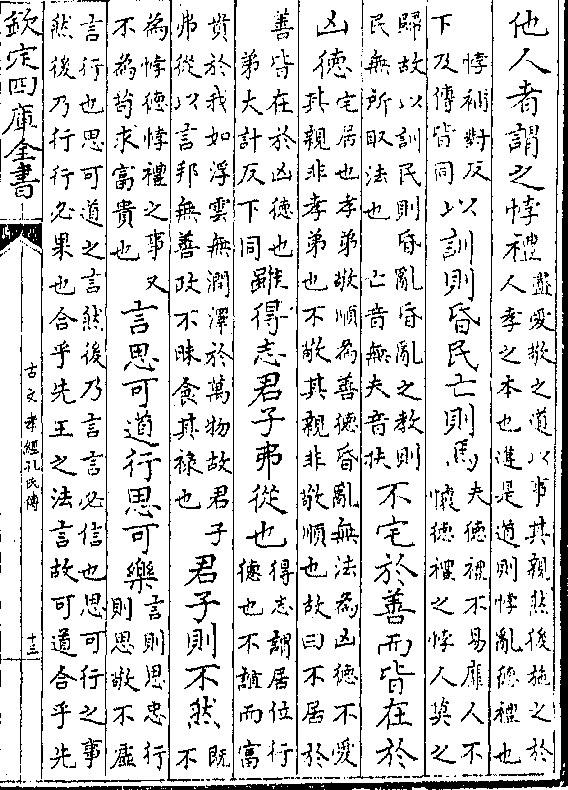 他人者謂之悖禮盡愛敬之道以事其親然後施之於人孝之本也違是道則悖亂德禮也
悖補對反下及傳皆同以訓則昏民亡則焉夫德禮不易靡人不懷德禮之悖人莫之
歸故以訓民則昏亂昏亂之教則民無所取法也 亡音無夫音扶不宅於善而皆在於
凶德宅居也孝弟敬順為善德昏亂無法為凶德不愛其親非孝弟也不敬其親非敬順也故曰不居於
善皆在於凶德也弟大計反下同雖得志君子弗從也得志謂居位行德也不誼而富
貴於我如浮雲無潤澤於萬物故君子弗從以言邦無善政不昧食其祿也君子則不然既不
為悖德悖禮之事又不為苟求富貴也言思可道行思可樂言則思忠行則思敬不虛
言行也思可道之言然後乃言言必信也思可行之事然後乃行行必果也合乎先王之法言故可道合乎先
欽定四庫全書
古文孝經孔氏傳
十三